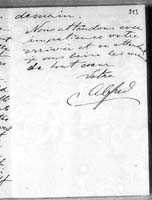 demain.
Nous attendons avec
impatience votre
arrivée et en attendant
je vous baise les mains
de tout coeur
Votre
Alfred